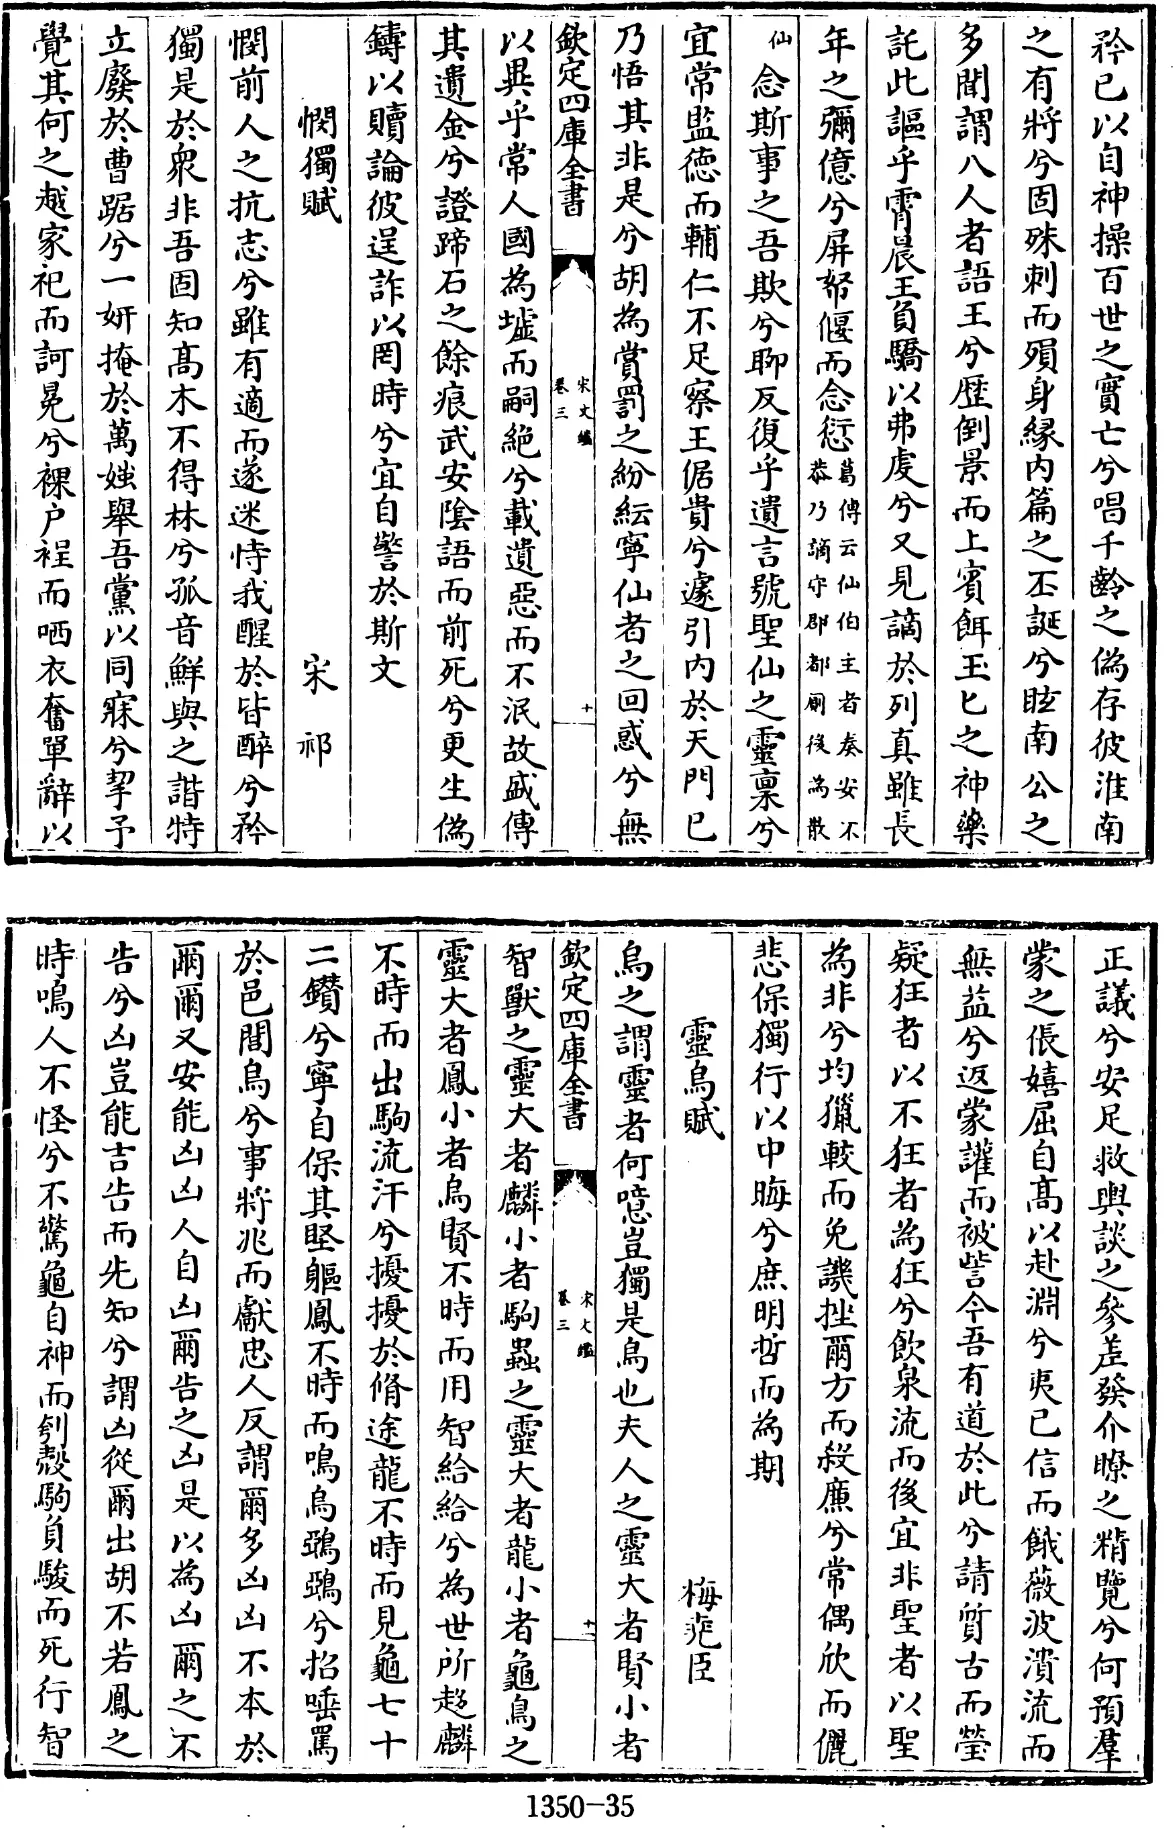 矜已以自神操百世之實亡兮唱千齡之偽存彼淮南
之有將兮固殊刺而殞身緣内篇之丕誕兮眩南公之
多聞謂八人者語王兮歷倒景而上賓餌玉匕之神藥
託此謳乎霄晨王負驕以弗虔兮又見謫於列真雖長
年之彌億兮屏帑偃而念愆葛傳云仙伯主者奏安不恭乃謫守郡都厠後為散
仙念斯事之吾欺兮聊反復乎遺言號聖仙之靈稟兮
宜常監德而輔仁不足察王倨貴兮遽引内於天門已
乃悟其非是兮胡為賞罰之紛紜寧仙者之回惑兮無
欽定四庫全書
宋文鑑
卷三
十
以異乎常人國為墟而嗣絶兮載遺惡而不泯故盛傳
其遺金兮證蹄石之餘痕武安陰語而前死兮更生偽
鑄以贖論彼逞詐以罔時兮宜自警於斯文
憫獨賦
宋祁
憫前人之抗志兮雖有適而遂迷恃我醒於皆醉兮矜
獨是於衆非吾固知髙木不得林兮孤音鮮與之諧特
立廢於曹踞兮一妍掩於萬媸舉吾黨以同寐兮挈予
覺其何之越家祀而訶冕兮裸户裎而哂衣奮單辭以
正議兮安足救輿談之參差發介瞭之精覽兮何預羣
蒙之倀嬉屈自髙以赴淵兮夷已信而餓薇波潰流而
無益兮返蒙讙而被訾今吾有道於此兮請質古而瑩
疑狂者以不狂者為狂兮飲泉流而後宜非聖者以聖
為非兮均獵較而免譏挫爾方而殺廉兮常偶欣而儷
悲保獨行以中晦兮庶明哲而為期
靈烏賦
梅堯臣
烏之謂靈者何噫豈獨是烏也夫人之靈大者賢小者
欽定四庫全書
宋文鑑
卷三
十一
智獸之靈大者麟小者駒蟲之靈大者龍小者龜鳥之
靈大者鳳小者烏賢不時而用智給給兮為世所趨麟
不時而出駒流汗兮擾擾於脩途龍不時而見龜七十
二鑽兮寧自保其堅軀鳳不時而鳴烏鵶鵶兮招唾罵
於邑閭烏兮事將兆而獻忠人反謂爾多凶凶不本於
爾爾又安能凶凶人自凶爾告之凶是以為凶爾之不
告兮凶豈能吉告而先知兮謂凶從爾出胡不若鳳之
時鳴人不怪兮不驚龜自神而刳殼駒負駿而死行智
1350-35